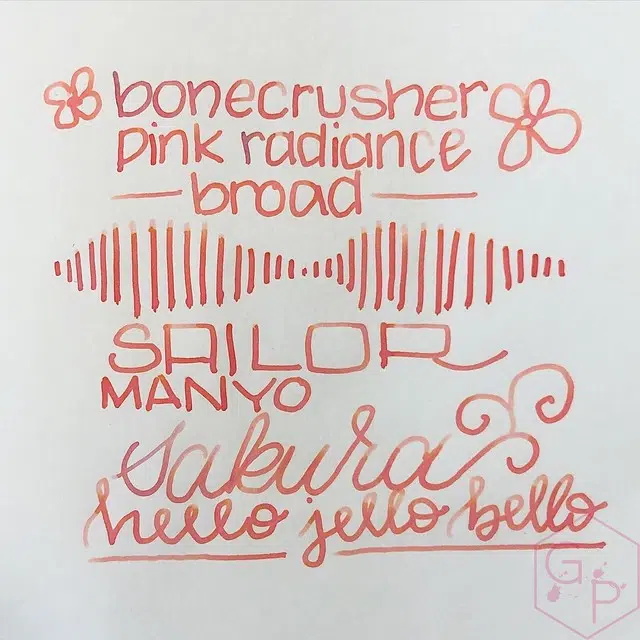 bonecrusher
pink radiance
broad
SAILOR
MANYO
sakura
hello jello bello
GP